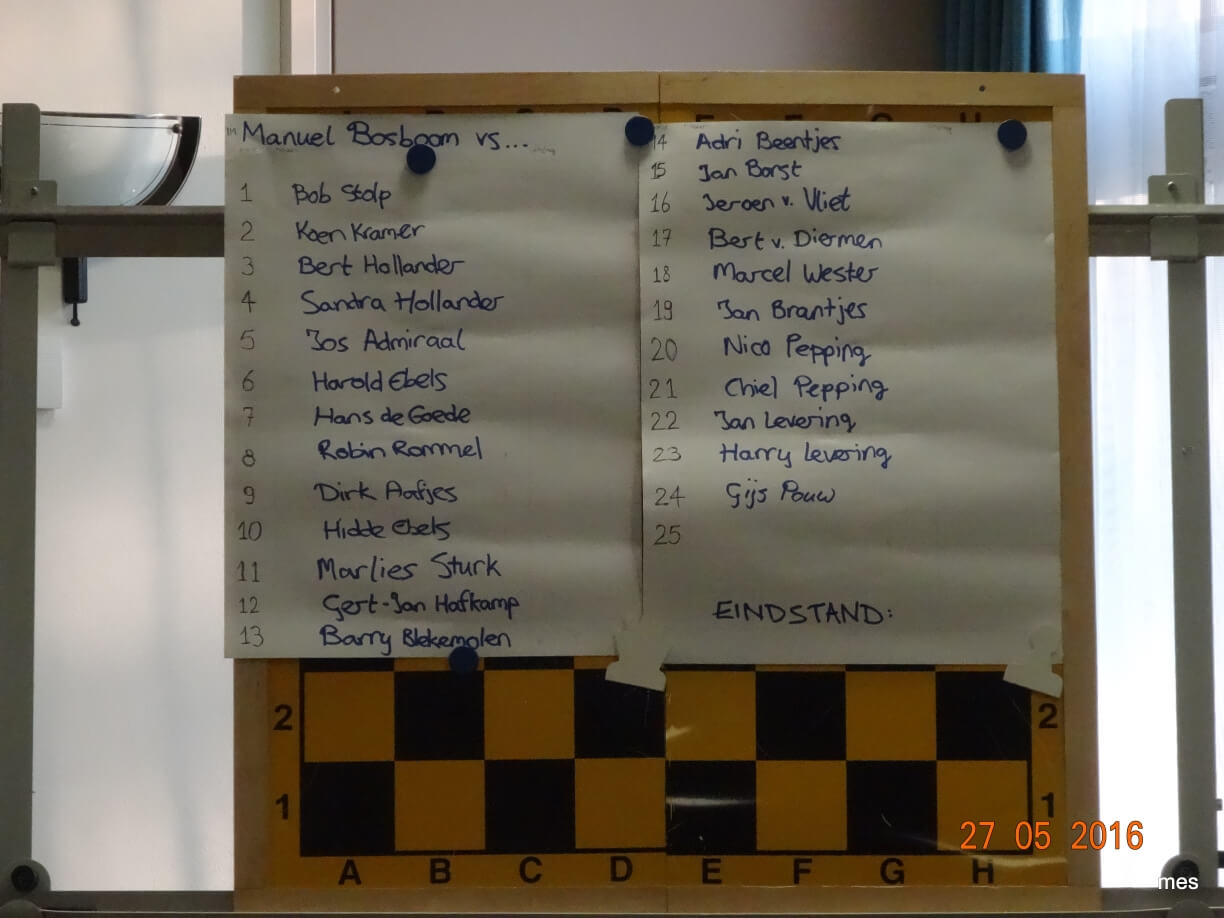 Manuel Bosboom vs...
1 Bob Stolp
2 Koen Kramer
3 Bert Hollander
4 Sandra Hollander
5 Jos Admiraal
6 Harold Ebels
7 Hans de Goede
8 Robin Rommel
9 Dirk Aafjes
10 Hidde Ebels
11 Marlies Sturk
12 Gert-Jan Hafkamp
13 Barry Blekemolen
14 Adri Beentjes
15 Jan Borst
16 Jeroen v. Vliet
17 Bert v. Diermen
18 Marcel Wester
19 Jan Brantjes
20 Nico Pepping
21 Chiel Pepping
22 Jan Levering
23 Harry Levering
24 Gijs Pouw
25
EINDSTAND:
2 2
1 1
A B C D E F G H
27 05 2016
mes